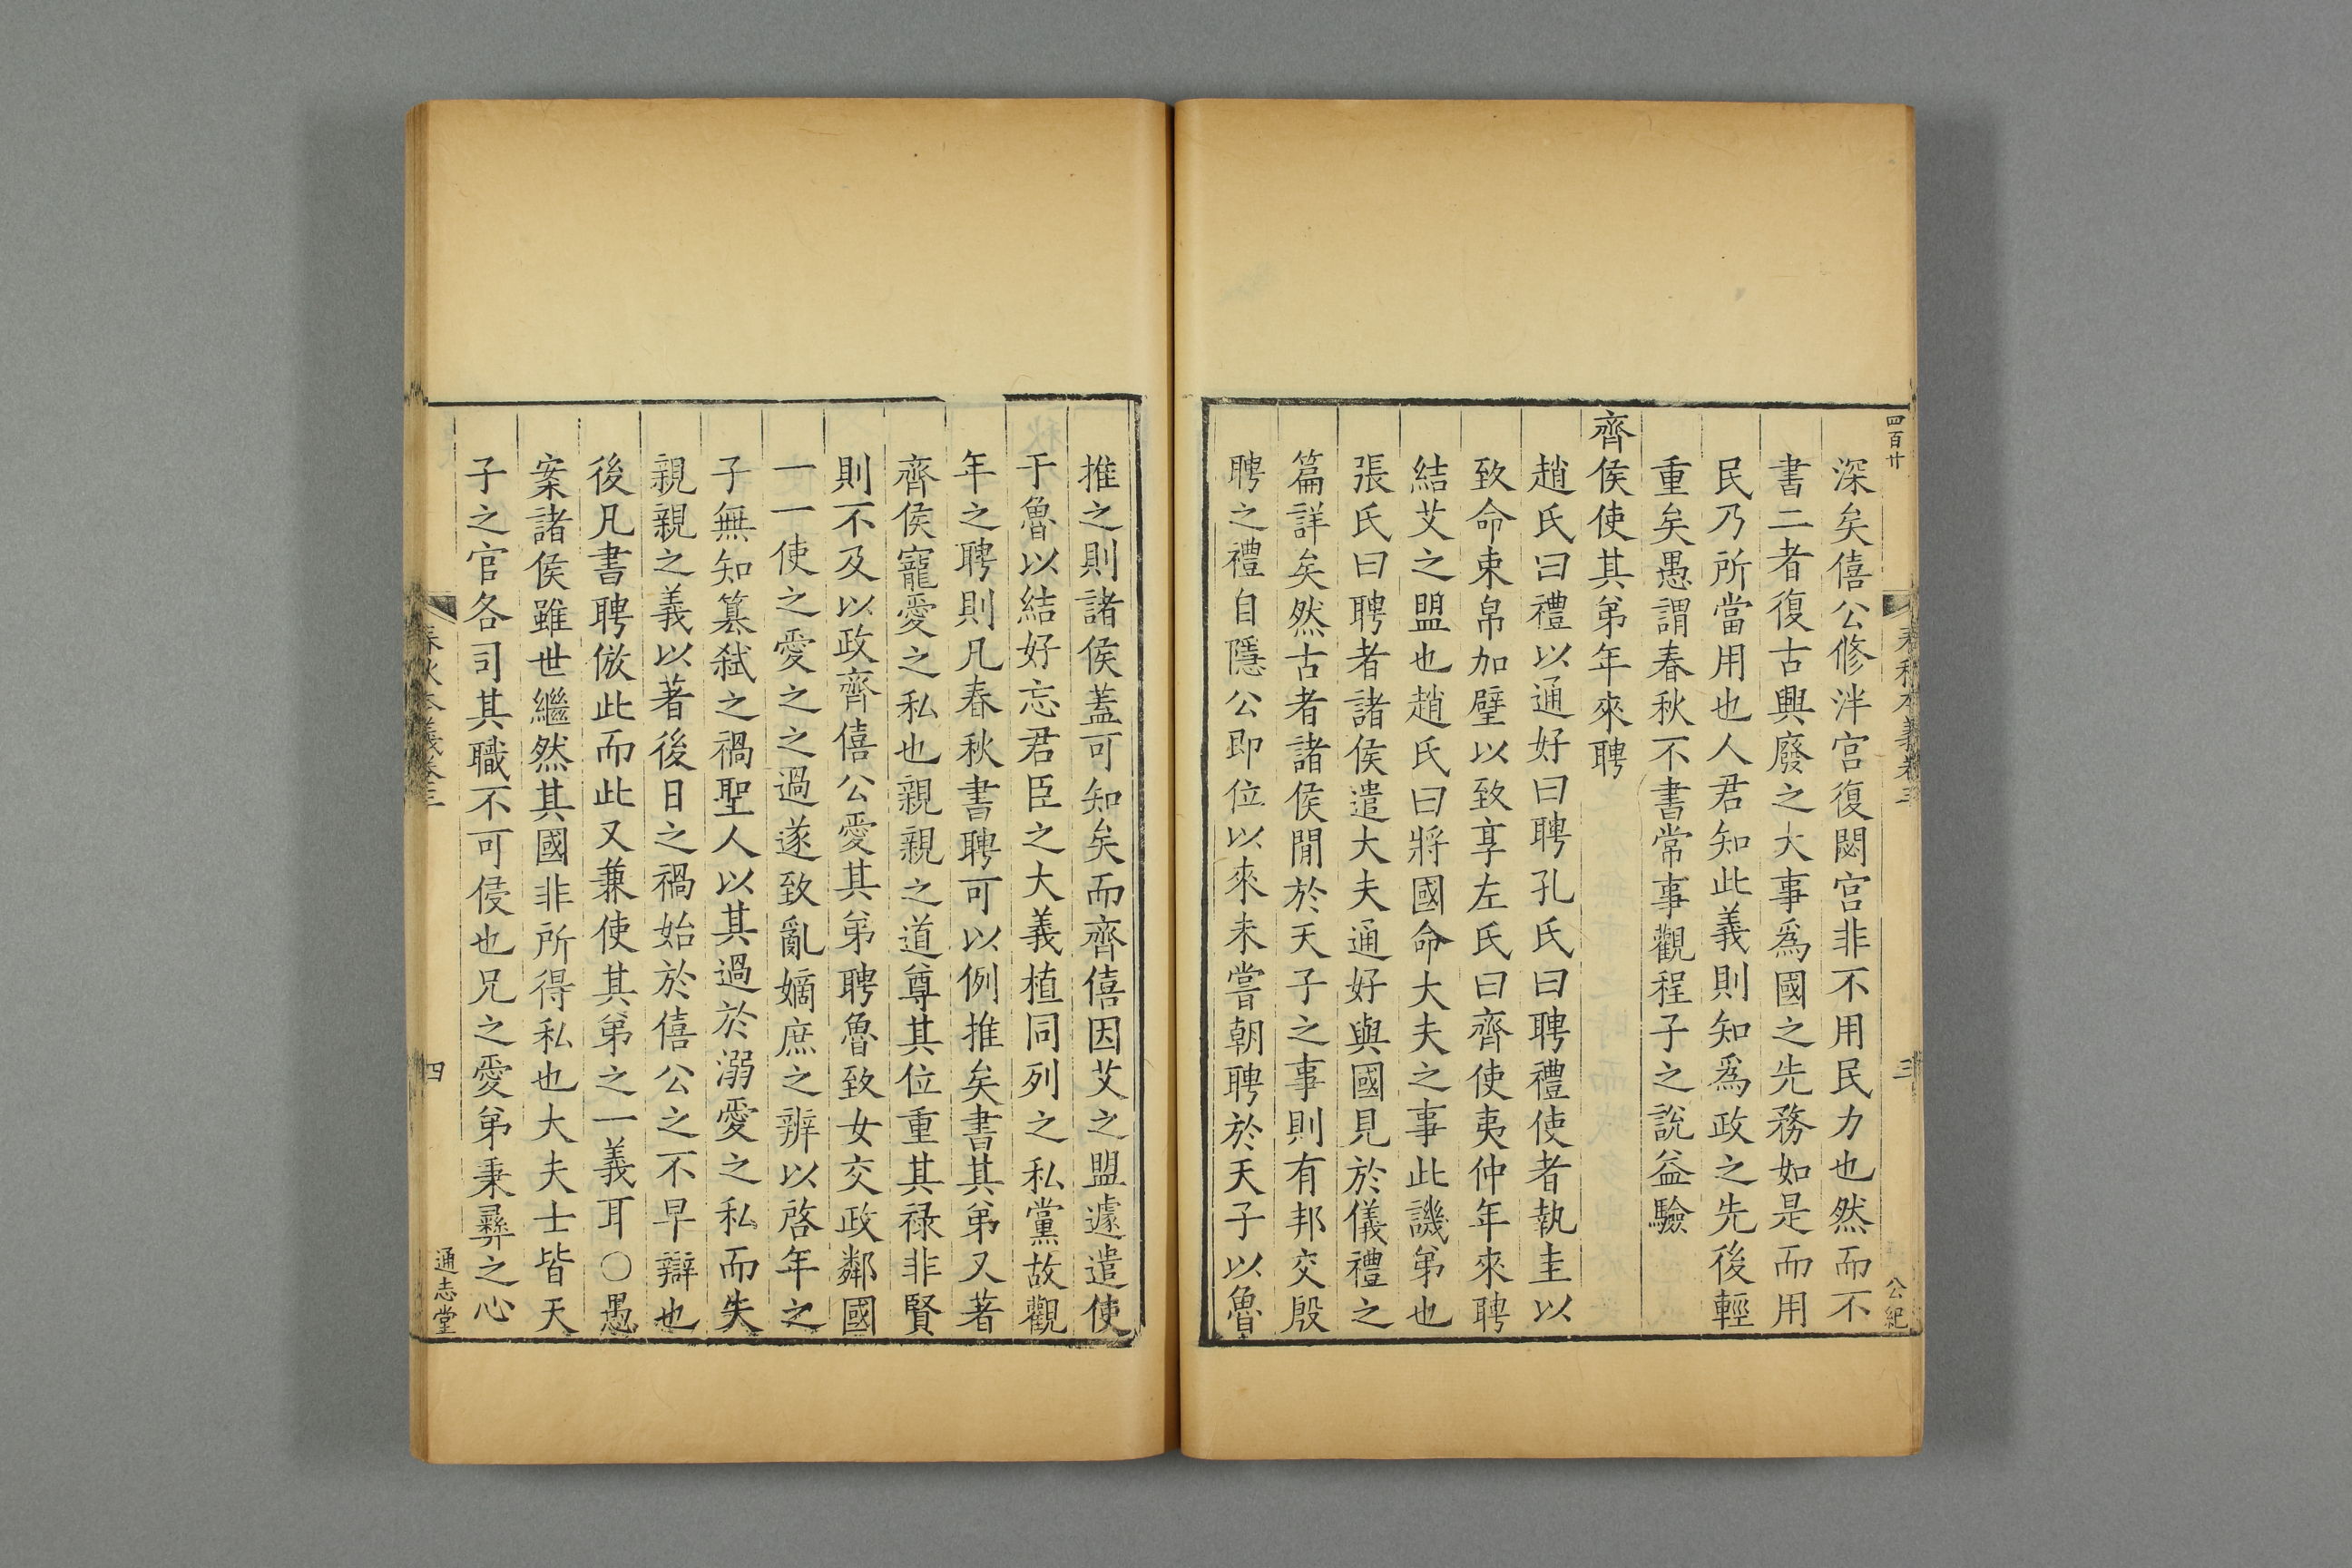 四百廿
春秋本義卷三
三
公紀
深矣僖公修泮宮復閟宮非不用民力也然而不
書二者復古興廢之大事爲國之先務如是而用
民乃所當用也人君知此義則知爲政之先後輕
重矣愚謂春秋不書常事觀程子之說益驗
齊侯使其弟年來聘
趙氏曰禮以通好曰聘孔氏曰聘禮使者執圭以
致命束帛加璧以致享左氏曰齊使夷仲年來聘
結艾之盟也趙氏曰將國命大夫之事此譏弟也
張氏曰聘者諸侯遣大夫通好與國見於儀禮之
篇詳矣然古者諸侯閒於天子之事則有邦交殷
聘之禮自隱公即位以來未嘗朝聘於天子以魯
推之則諸侯蓋可知矣而齊僖因艾之盟遽遣使
于魯以結好忘君臣之大義植同列之私黨故觀
年之聘則凡春秋書聘可以例推矣書其弟又著
齊侯寵愛之私也親親之道尊其位重其祿非賢
則不及以政齊僖公愛其弟聘魯致女交政鄰國
一一使之愛之之過遂致亂嫡庶之辨以啓年之
子無知簒弑之禍聖人以其過於溺愛之私而失
親親之義以著後日之禍始於僖公之不早辯也
後凡書聘倣此而此又兼使其弟之一義耳○愚
案諸侯雖世繼然其國非所得私也大夫士皆天
子之官各司其職不可侵也兄之愛弟秉彝之心
春秋本義卷三
四
通志堂